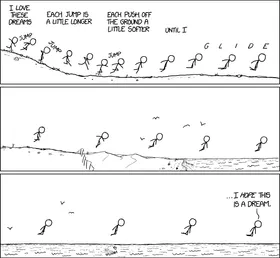 I LOVE
THESE
DREAMS
JUMP
JUMP
JUMP
EACH JUMP IS
A LITTLE LONGER
EACH PUSH OFF
THE GROUND A
LITTLE SOFTER
JUMP
UNTIL I
G L I D E
...I HOPE THIS
IS A DREAM.